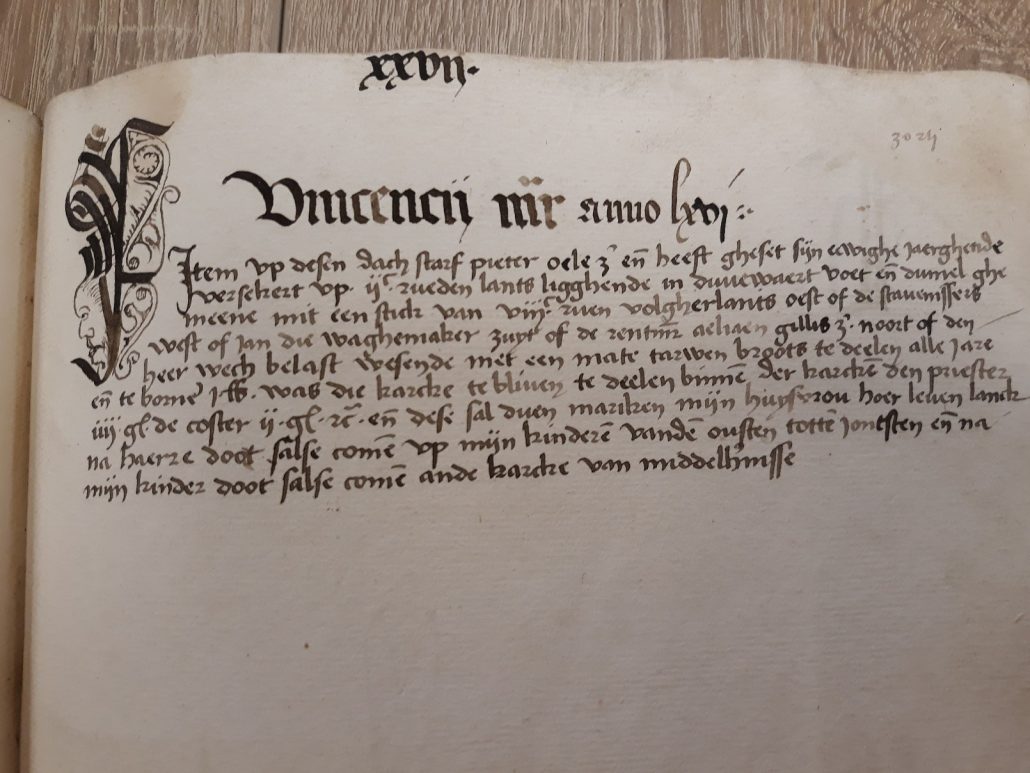 xxvij.
Vincencij mr̄ anno lxvi
Item vp desen dach starf pieter oele zͬ en̄ heeft gheset sijn eewighe jaerghende
versekert vp ijͨ rueden lants ligghende in duvewaert voet en̄ dumel ghe
meene mit een stick van viijͨ ruen volgherlants oest of de stavenissers
west of Jan die waghemaker zuyt of de rentmr̄ aeliaen gillis zͬ noort of den
heer wech belast wesende met een mate tarwen broots te deelen alle jare
en̄ te borne was die karcke te bliuen te deelen binnē der karckē den priester
iiij gͬ de coster ij gͬ en̄ dese sal duen mariken mijn huysvrou hoer leuen lanck
na haerre doot salse comē vp mijn kinderē vandē ousten tottē jonesten en̄ na
mijn kinder doot salse comē ande karcke van middelhˀnisse